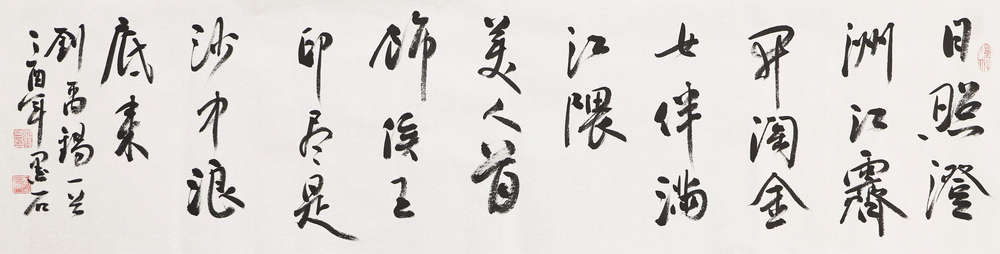 日照澄
洲江霧
開淘金
女伴满
江隈
美人首
飾侯王
印尽是
沙中浪
底来
劉禹锡一首
丁酉年墨石